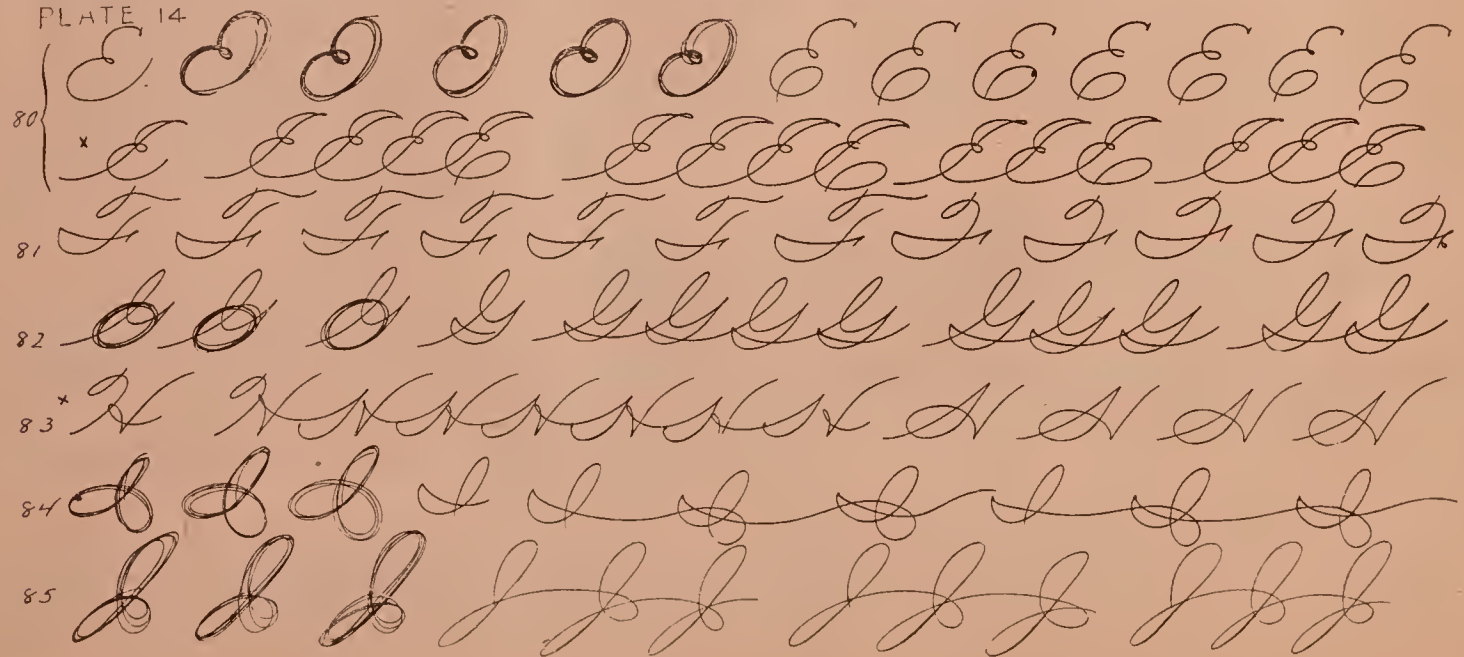 PLATE 14
E E E E E E E E E E E E E
80
x E EEEE EEEE EEE EEE
81 F F F F F F F F F F F F
82 G G G G GGGG GGG GG
83 x H HHHHHHH H H H H
84 I I I I III III
85 J J J JJJ JJJ JJJ